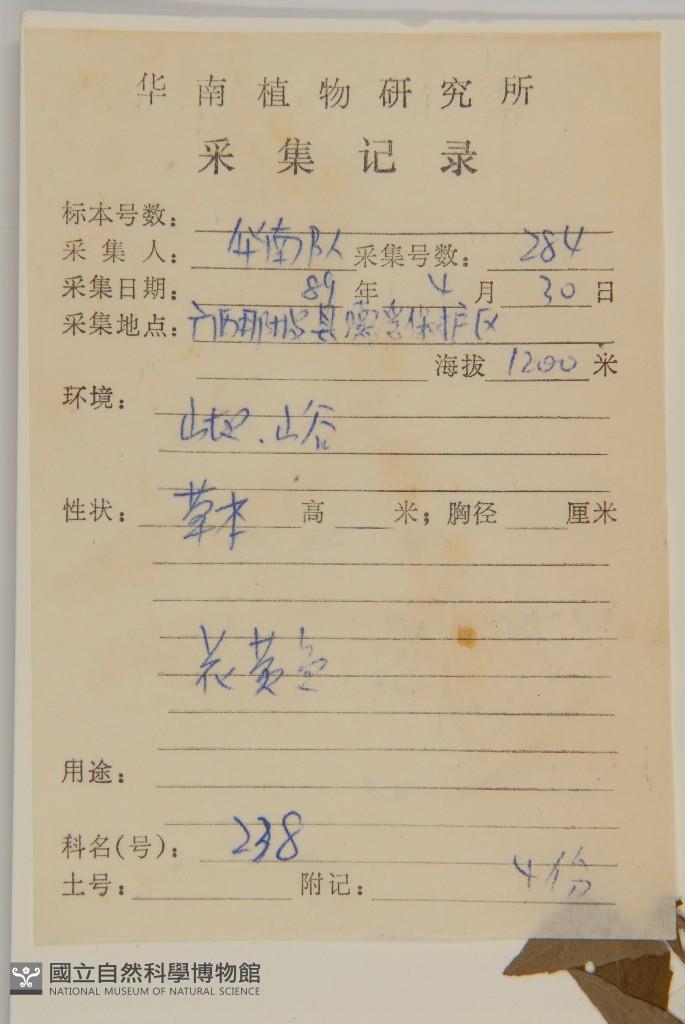 华南植物研究所
采集记录
标本号数：
采集人：华南队 采集号数：284
采集日期：89年4月30日
采集地点：广西那坡县 保护区
海拔1200米
环境：
山地、山谷
性状：草本 高 米；胸径 厘米
花黄色
用途：
科名(号)：238
土号： 附记：4份
國立自然科學博物館
NATIONAL MUSEUM OF NATURAL SCIENCE